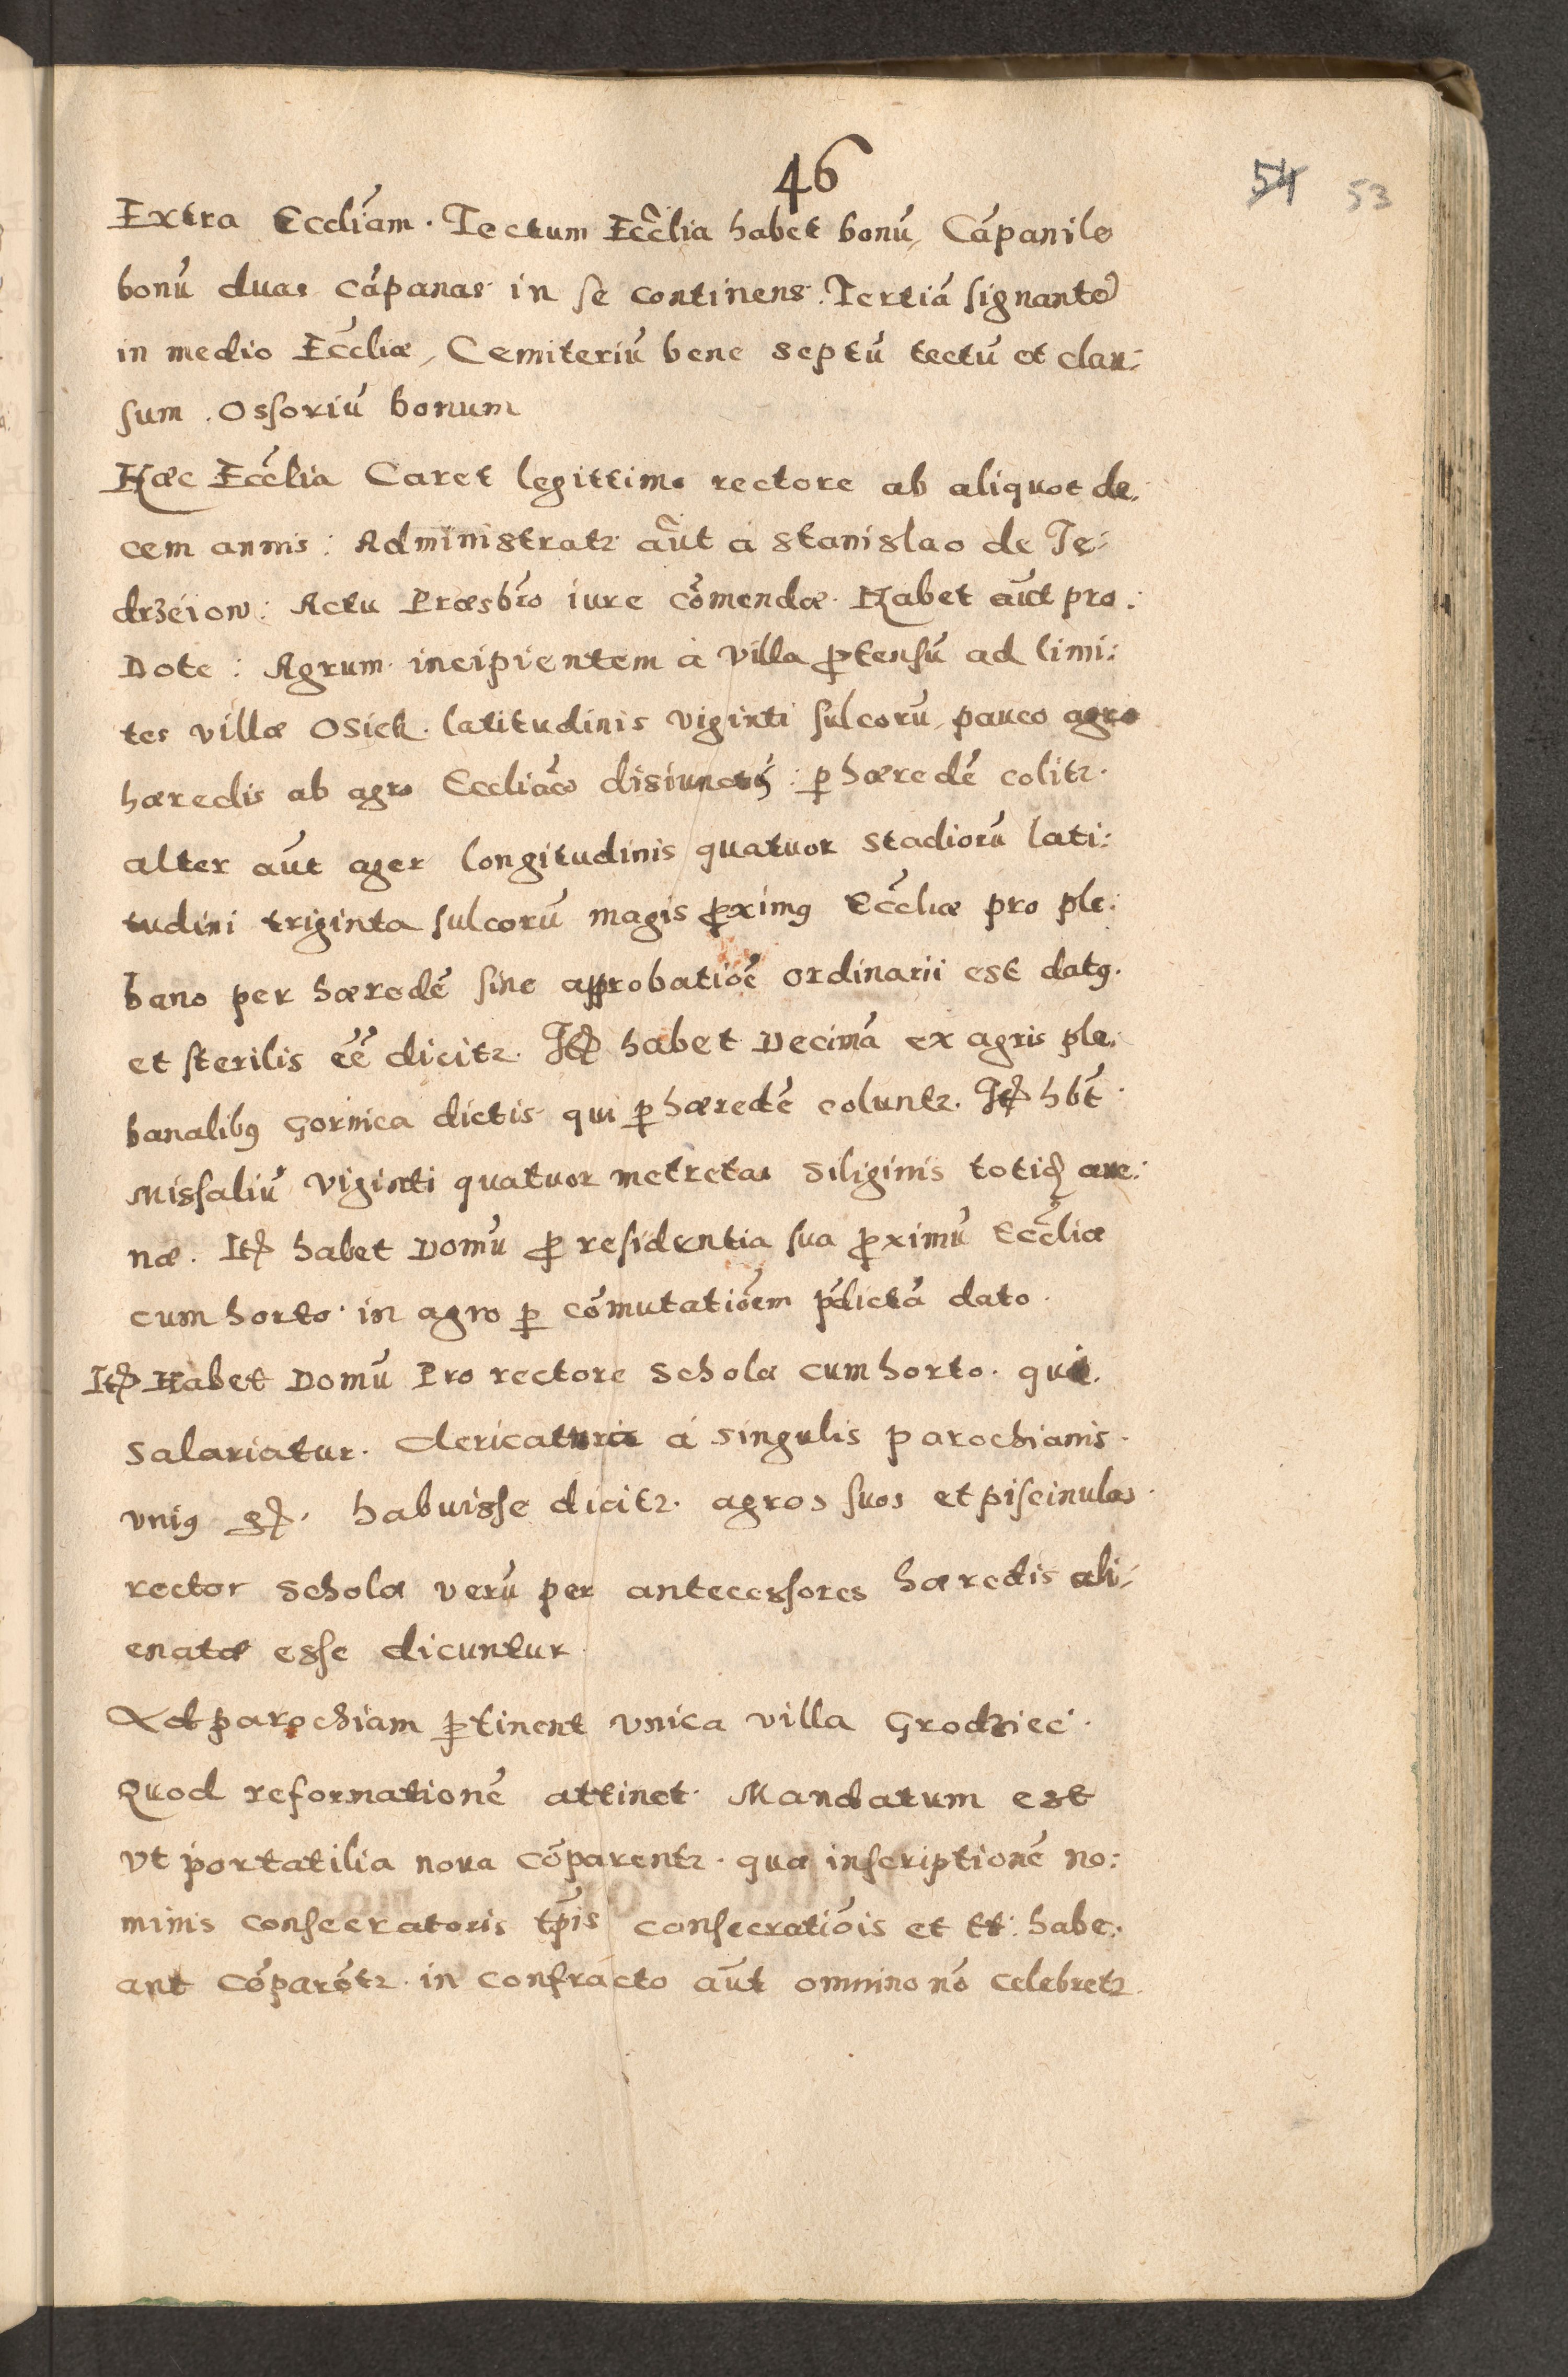 46
54 53
Extra Eccliam. Tectum Ecclia habet bonū, Cāpanile
bonū duas cāpanas in se continens. Tertiā signanter
in medio Eccliæ, Cemiteriū bene septū tectū et clau:
sum. Ossoriū bonum
Hæc Ecclia Caret legittimo rectore ab aliquot de:
cem annis: Administratr aūt a Stanislao de Ję:
drzeiow: Actu Præsbro iure cōmendæ. Habet aūt pro:
Dote: Agrum incipientem a villa ꝓtensū ad limi:
tes villæ Osiek. latitudinis viginti sulcorū, pauco agro
hæredis ab agro Eccliaco disiunctū: ꝑ hæredē colitr.
alter aūt ager longitudinis quatuor stadiorū lati:
tudini triginta sulcorū magis ꝓximꝯ Eccliæ pro ple:
bano per hæredē sine approbatiōe ordinarii est datꝯ.
et sterilis ēē dicitr. Itē habet Decimā ex agris ple:
banalibꝯ Gornica dictis qui ꝑ hæredē coluntr. Itē hbt
Missaliū viginti quatuor metretas siliginis totidē aue:
næ. Itē habet Domū ꝓ residentia sua ꝓximū Eccliæ
cum horto in agro ꝑ cōmutatiōem p̄dictā dato.
Itē Habet Domū Pro rectore Scholæ cum horto. qui
Salariatur. Clericatura á singulis parochianis.
vniꝯ gr. habuisse dicitr. agros suos et piscinulas.
rector Scholæ verū per antecessores hæredis ali:
enatæ esse dicuntur.
Ad parochiam ꝑtinent vnica villa Grodziec.
Quod reformationē attinet. Mandatum est
vt portatilia noua cōparentr. quæ inscriptionē no:
minis consecratoris tp̄is consecratiōis et tt: habe:
ant cōparētr. in confracto aūt omnino nō celebretr.